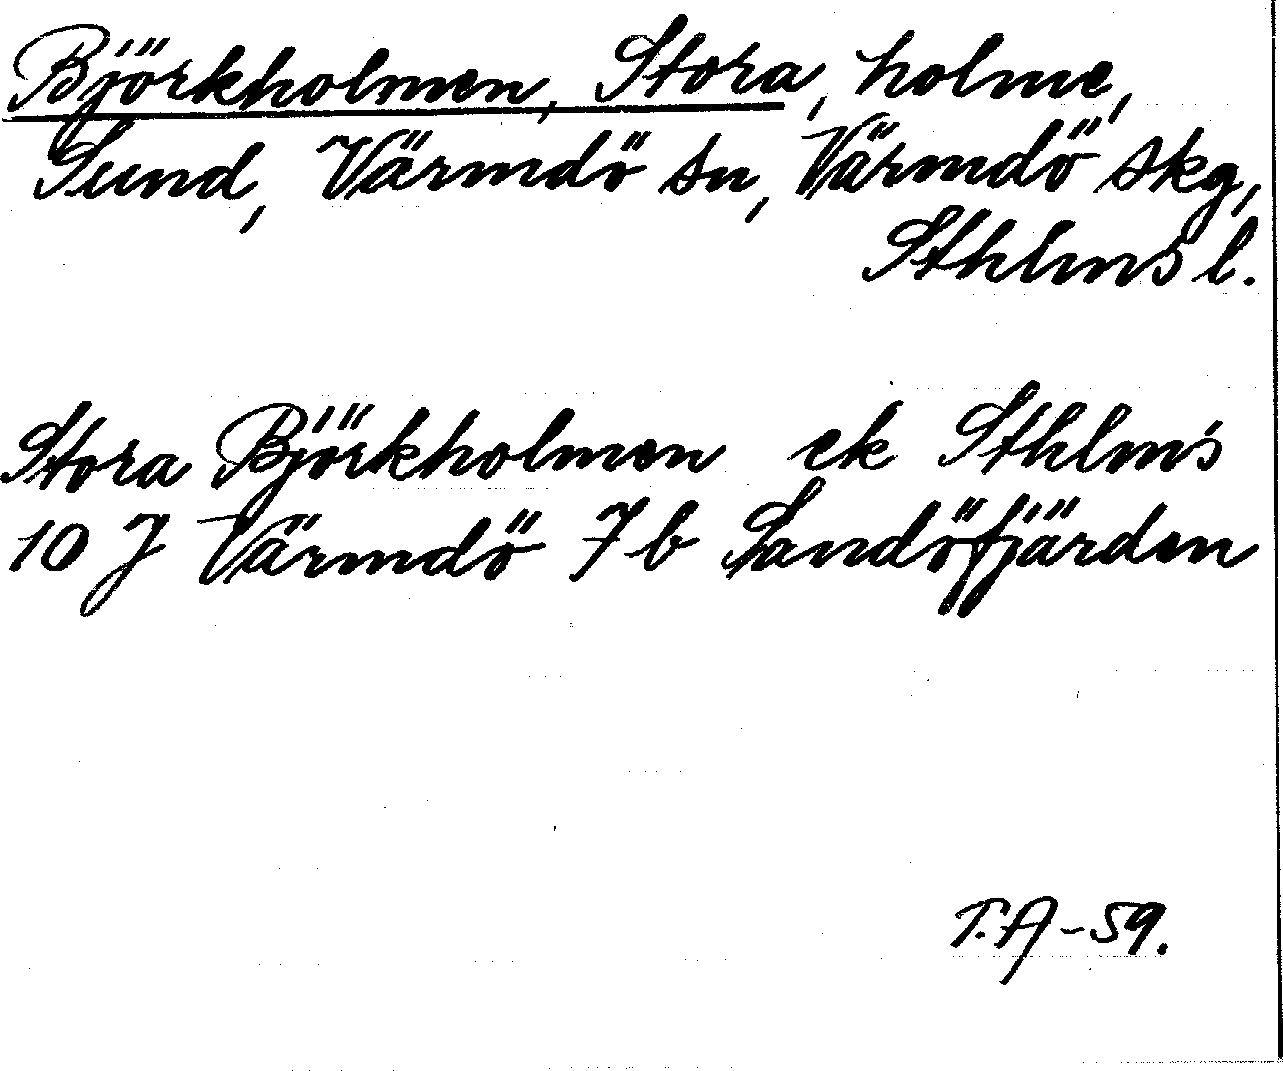 Björkholmen, Stora, holme,
Sund, Värmdö sn, Värmdö skg,
Sthlms l.
Stora Björkholmen ek Sthlms
10 J Värmdö 7 b Sandöfjärden
T.A-59.